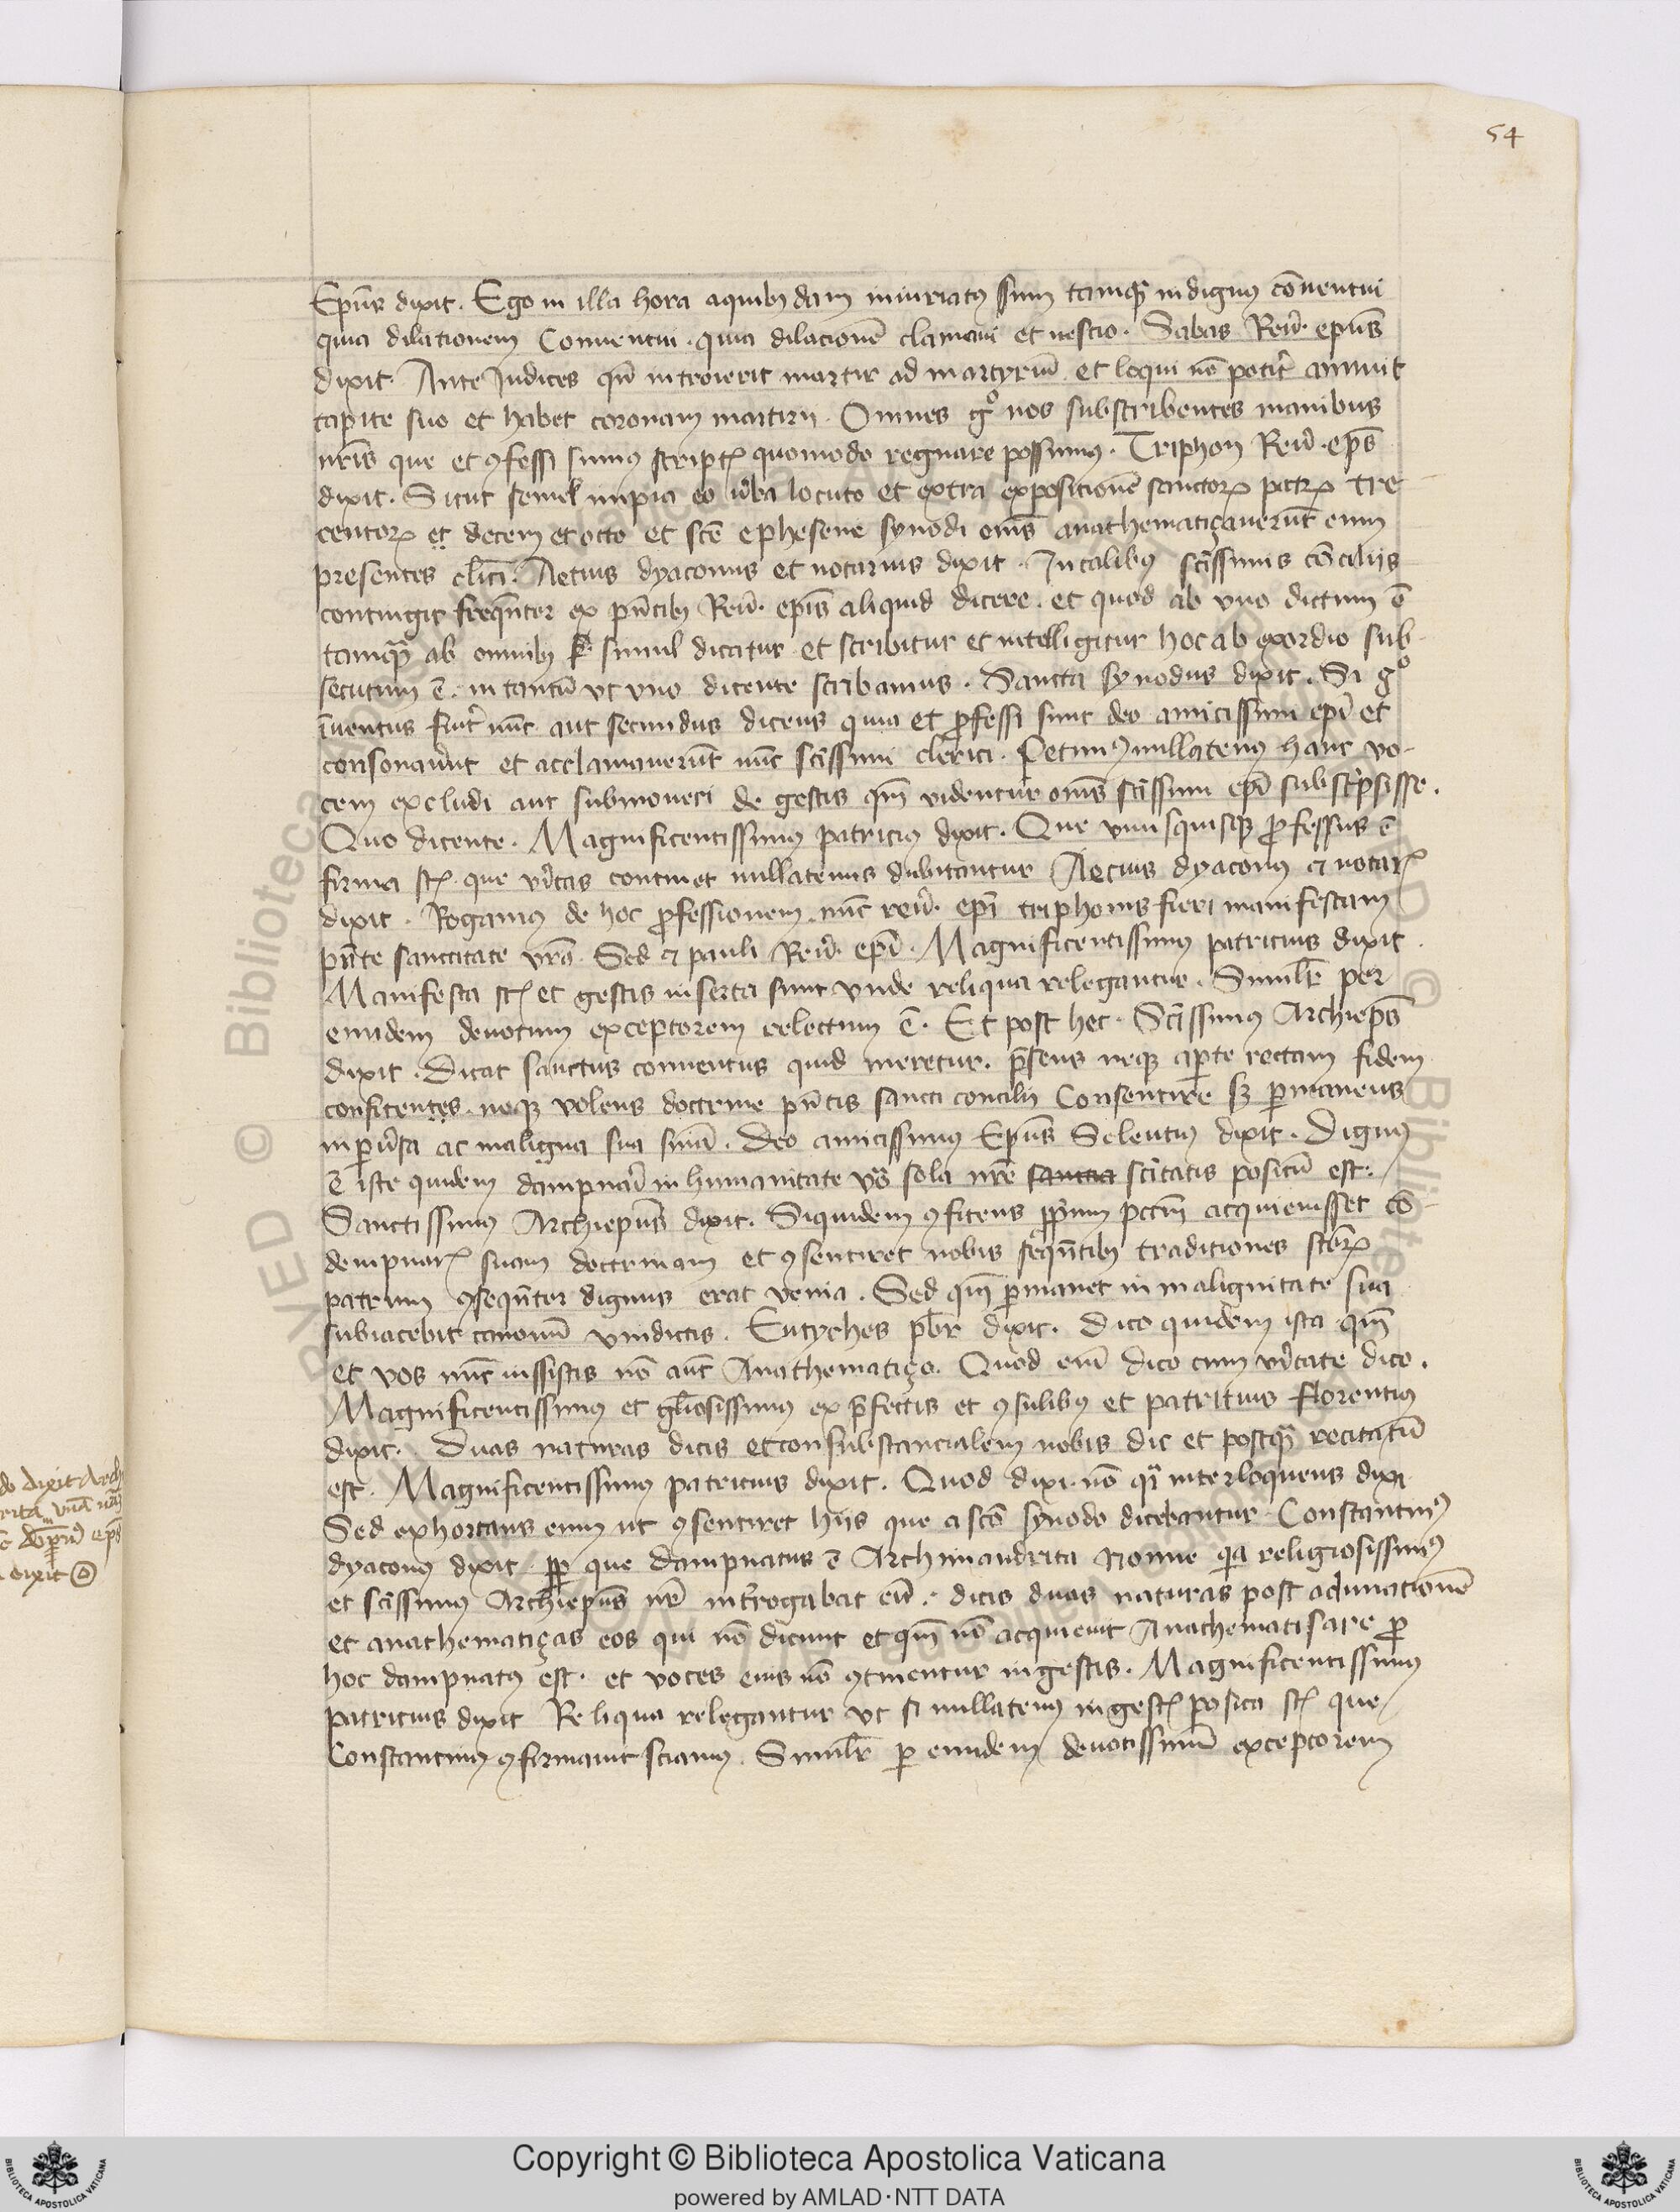 54
Epūs dixit. Ego in illa hora a quibusdam iniuriatꝰ sum tamqᷓ indignꝰ cōuentui
quia dilationem Conuentui. quia dilacionē clamaui et nescio. Sabas Reū. epūs
dixit. Ante Judices qn̄ introierit martir ad martyriū et loqui nō potit̉ annuit
capite suo et habet coronam martirii. Omnes gͦ nos subscribentes manibus
nr̄is que et ꝯfessi sumꝰ scriptꝭ quomodo regnare possumꝰ. Triphon Reū. eps̄
dixit. Sicut semel impia eo ūba locuto et extra expositionē sanctoꝝ patꝝ tre
centoꝝ et decem et octo et scē ephesene synodi oms̄ anathematiçauerūt eum
presentes clīci. Aetius dyaconus et notarius dixit. In talibꝰ sc̄issimis cōciliis
contingit freqn̄ter ex pn̄tibꝫ Reū. epīs aliquid dicere. et quod ab vno dictum ē
tamqᷓ ab omnibꝫ simul dicatur et scribitur et intelligitur hoc ab exordio sub
secutum ē. in tantū vt vno dicente scribamus. Sancta synodus dixit. Si gͦ
īuentus fuit̉ nūc aut secundus dicens quia et ꝓfessi sunt deo amicissimi epī et
consonauūt et acclamauerūt nūc sc̄issimi clerici. Petimꝰ nullatenꝰ hanc vo-
cem excludi aut submoueri de gestis qm̄ videntur oms̄ sc̄issimi epī subscr̄ipsisse.
Quo dicente. Magnificentissimꝰ patriciꝰ dixit. Que vnusquisqꝫ ꝓfessus ē
firma st̄ que ūitas continet nullatenus dubitantur Aecius dyaconꝰ ⁊ notarꝭ
dixit. Rogamus de hoc ꝓfessionem nūc reū. epī triphonis fieri manifestam
pn̄te sanctitate vrā. Sed ⁊ pauli Reū. epī. Magnificentissimꝰ patricius dixit.
Manifesta st̄ et gestis inserta sunt vnde reliqua relegantur. Simil̄r per
eundem deuotum exceptorem relectum ē. Et post hec. Sc̄issimꝰ Archiepūs
dixit. Dicat sanctus conuentus quid meretur. p̄sens neqꝫ aꝑte rectam fidem
confitentes. neqꝫ volens doctrine pn̄tis sancti concilii Consentire sꝫ ꝑmanens
in ꝑūsa ac maligna sua sn̄ia. Deo amicissimꝰ Epūs Selentiꝰ dixit. Dignꝰ
ē iste quidem dampnari in humanitate vrō sola nrē sc̄itatis positū est.
Sanctissimꝰ Archiepūs dixit. Siquidem ꝯfitens ꝓprium pcc̄m acquieuisset cō-
dempnarꝭ suam doctrinam et ꝯsentiret nobis seqn̄tibꝫ traditiones sctōꝝ
patrum ꝯseqn̄ter dignus erat venia. Sed qm̄ ꝑmanet in malignitate sua
subiacebit canonū vindictis. Eutyches pbr̄ dixit. Dico quidem ista qm̄
et vos nūc iussistis nō aūt Anathematiço. Quod enī dico cum ūitate dico.
Magnificentissimꝰ et gl̄iosissimꝰ ex p̄fectis et ꝯsulibꝰ et patritius florentiꝰ
dixit. Duas naturas dicis et consubstancialem nobis dic et postqᷓ recitatū
est. Magnificentissimꝰ patricius dixit. Quod dixi nō qͣ interloquens dixi
Sed exhortans eum ut ꝯsentiret hiis que a scō synodo dicebantur. Constantinꝰ
dyaconꝰ dixit. ꝓp̄ que dampnatus ē Archimandrita nonne qꝛ religiosissimꝰ
et sc̄issimꝰ Archiepūs nr̄ int̉rogabat eū. dicis duas naturas post adunationē
et anathematiças eos qui nō dicunt et qm̄ nō acquieuit Anathematisare ꝓ
hoc dampnatꝰ est. et voces eius nō ꝯtinentur in gestis. Magnificentissimꝰ
patricius dixit Reliqua relegantur vt si nullatenꝰ in gestꝭ posita st̄ que
Constantinꝰ ꝯfirmauit sciamꝰ. Simil̄r ꝑ eundem deuotissimū exceptorem
Copyright © Biblioteca Apostolica Vaticana
powered by AMLAD·NTT DATA